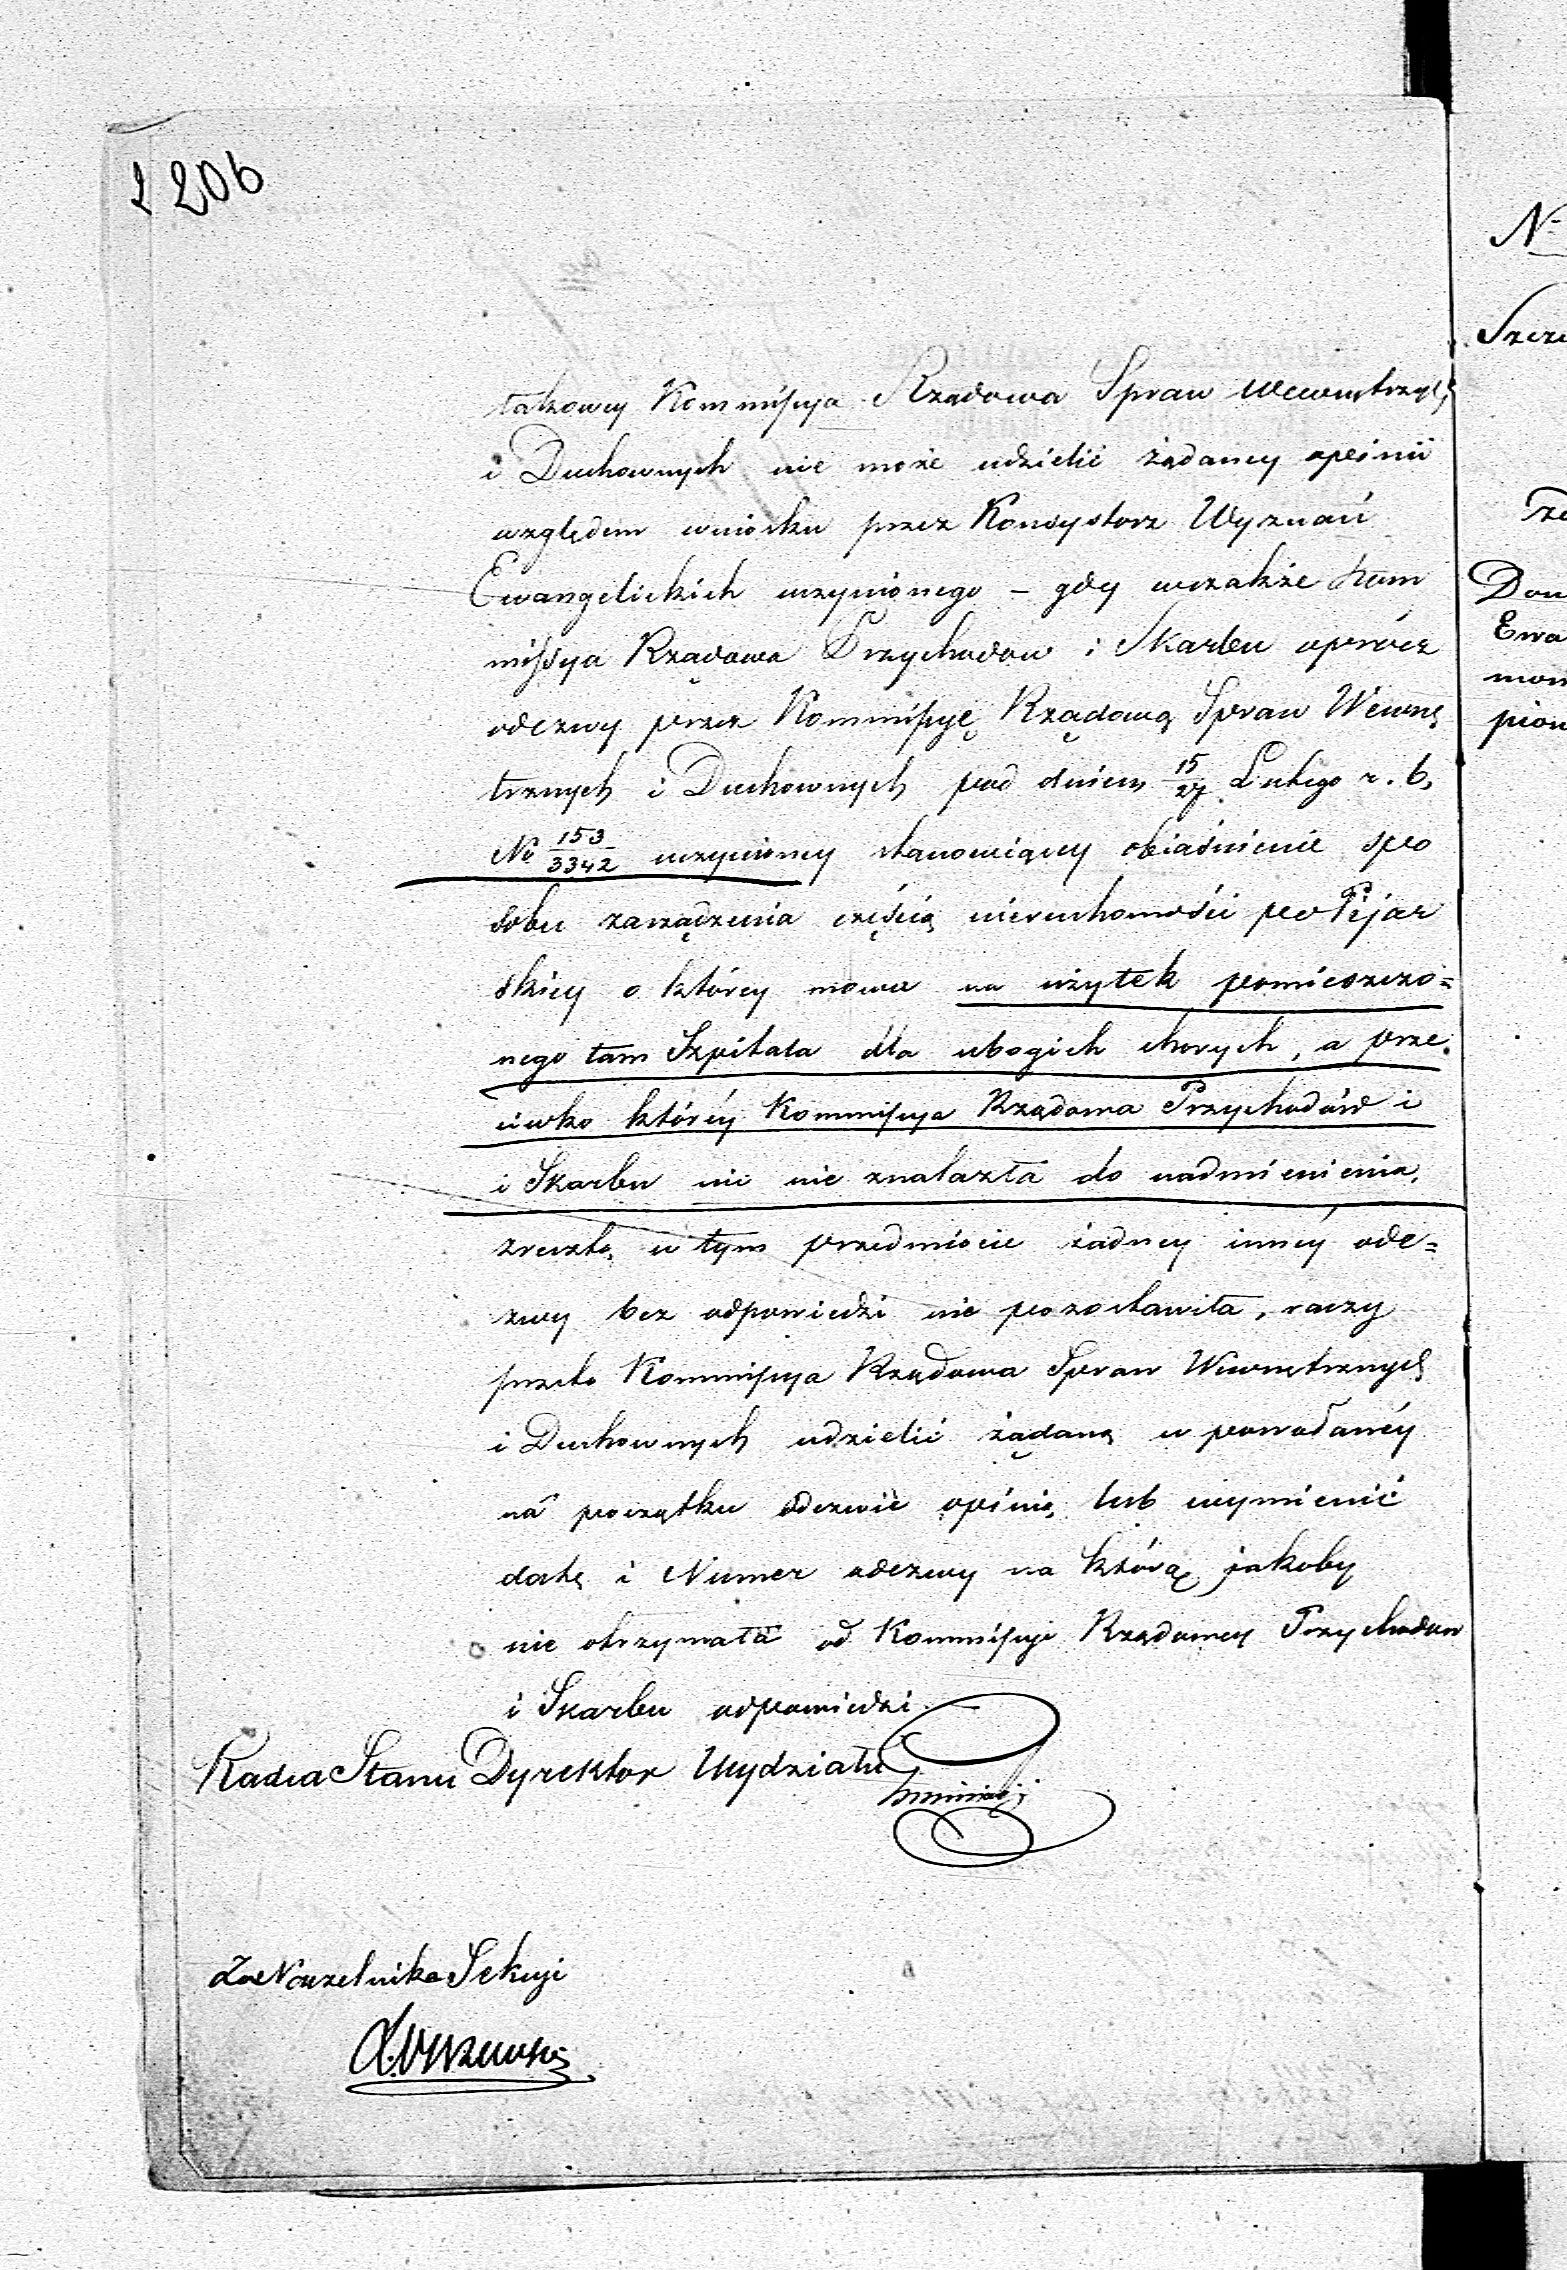 206
takowey Kommissya Rządowa Spraw Wewnętrznych
i Duchownych nie może udzielić żądaney opinii
względem wniosku przez Konsystorz Wyznań
Ewangelickich uczynionego – gdy wszakże Kom
missya Rządowa Przychodow i Skarbu oprócz
odezwy przez Kommissyę Rządową Spraw Wewnę
trznych i Duchownych pod dniem 15/27 Lutego r. b.
No 153/3342 uczynioney stanowiącey obiaśnienie spo
sobu zarządzenia częścią nieruchomości po Pijar
skiey o którey mowa na użytek pomieszczo=
nego tam Szpitala dla ubogich chorych, a prze
ciwko któréy Kommissya Rządowa Przychodów i
i Skarbu nic nie znalazła do nadmienienia,
zresztą w tym przedmiocie żadney innéy ode=
zwy bez odpowiedzi nie pozostawiła, raczy
przeto Kommissya Rządowa Spraw Wewnętrznych
i Duchownych udzielić żądaną w powołanéy
na początku odezwie opinię, lub wymienić
datę i Numer odezwy na którą jakoby
nie otrzymała od Kommissyi Rządowey Przychodow
i Skarbu odpowiedzi.
Radca Stanu Dyrektor Wydziału
Za Naczelnika Sekcyi
N
Don
Ewa
mon
pion